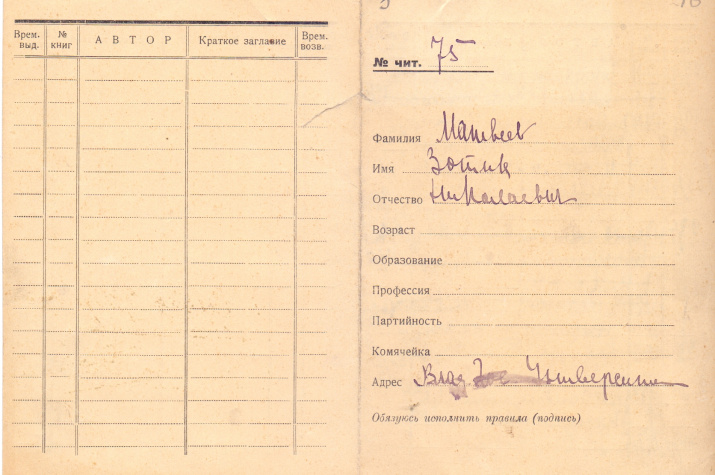 Врем. выд.
№ книг
АВТОР
Краткое заглавие
Врем. возв.
№ чит. 75
Фамилия Матвеев
Имя Зотик
Отчество Николаевич
Возраст
Образование
Профессия
Партийность
Комячейка
Адрес Влад. Университ
Обязуюсь исполнить правила (подпись)